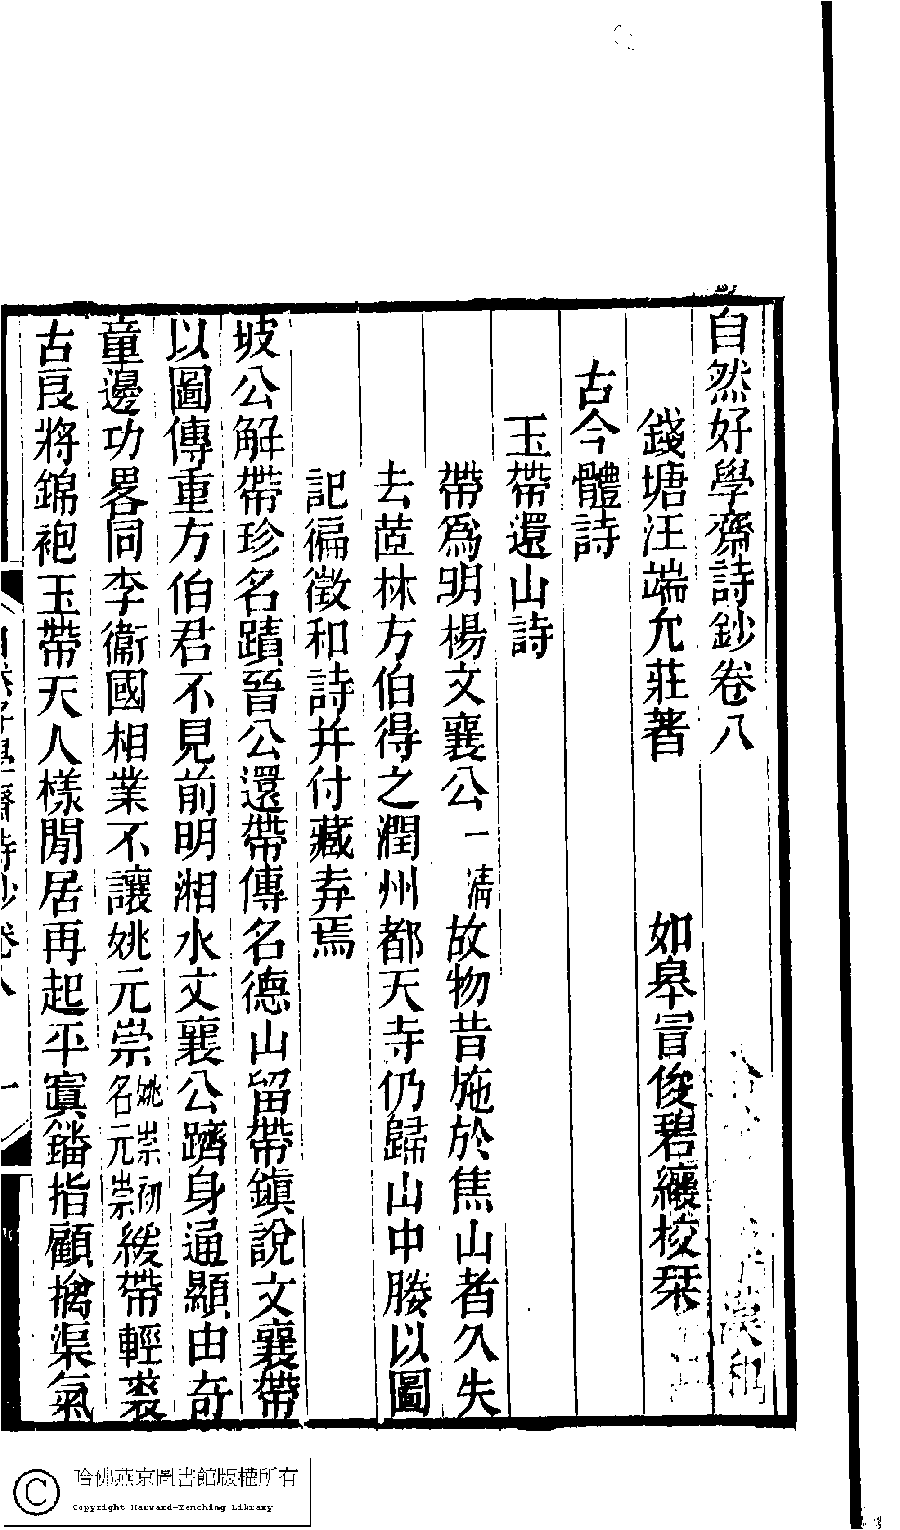 自然好學齋詩鈔卷八
錢塘汪端允莊著　如皋冒俊碧纕校栞
古今體詩
玉帶還山詩
帶爲明楊文襄公一淸故物昔施於焦山者久失
去茝林方伯得之潤州都天寺仍歸山中媵以圖
記徧徵和詩幷付藏弆焉
坡公解帶珍名蹟晉公還帶傳名德山留帶鎭說文襄帶
以圖傳重方伯君不見前明湘水文襄公躋身通顯由奇
童邊功畧同李衞國相業不讓姚元崇姚崇初名元崇緩帶輕裘
古良將錦袍玉帶天人樣閒居再起平寘鐇指顧擒渠氣
自然好學齋詩鈔卷八
一
哈佛燕京圖書館版權所有
Copyright Harvard-Yenching Library